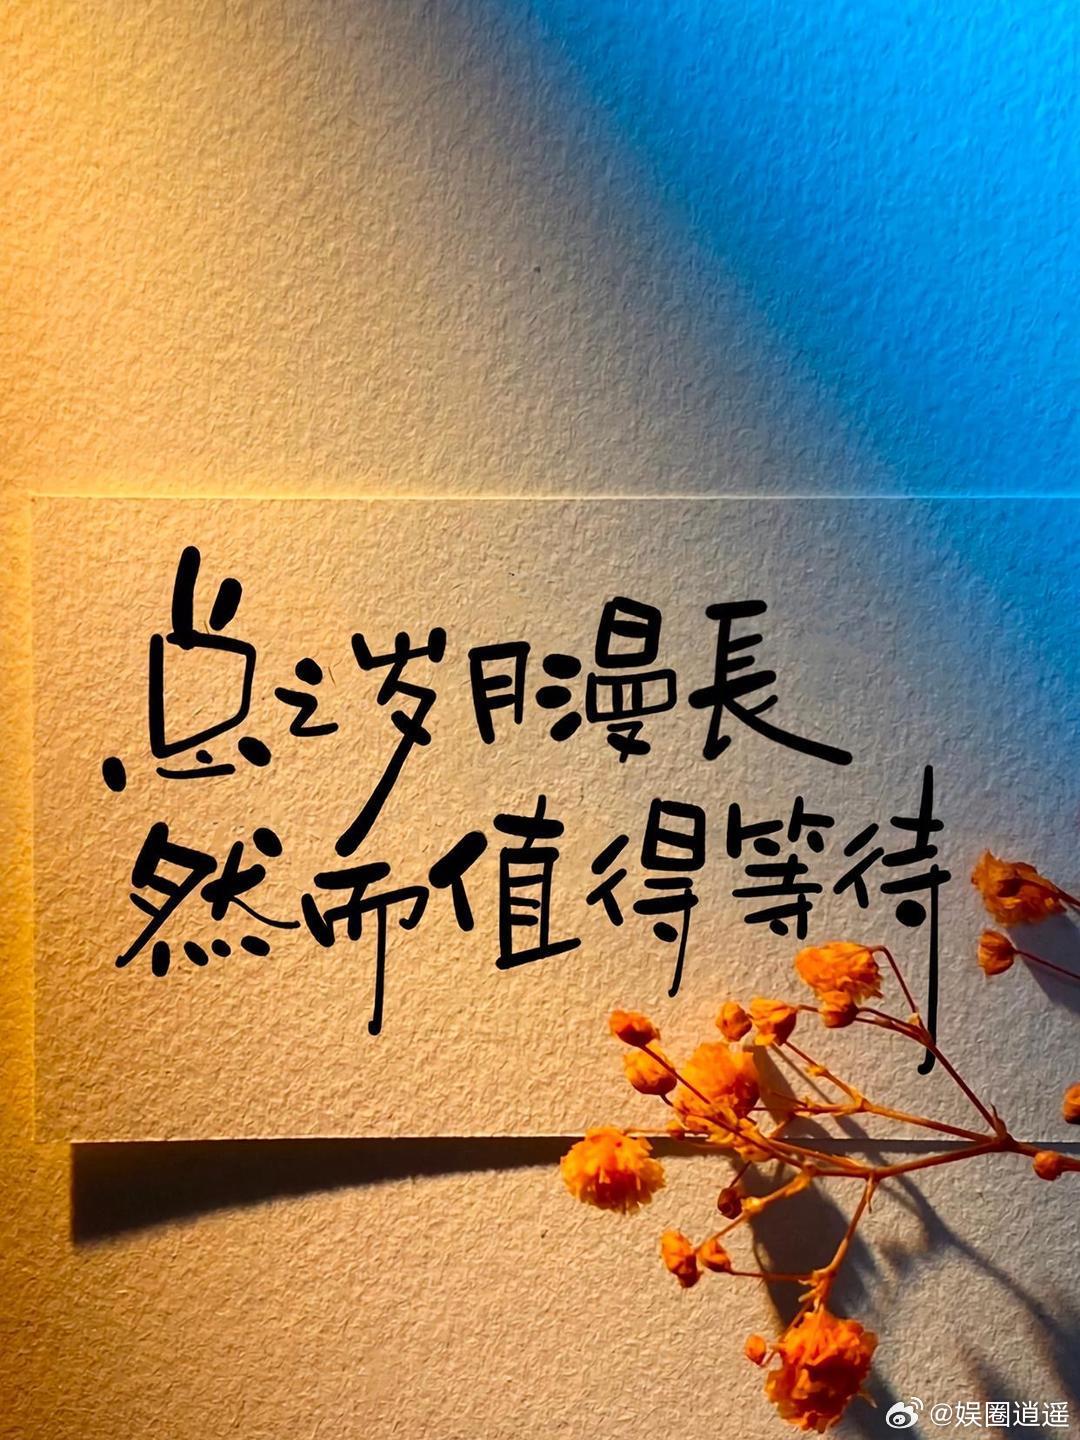 总之岁月漫長
然而值得等待
@娱圈逍遥